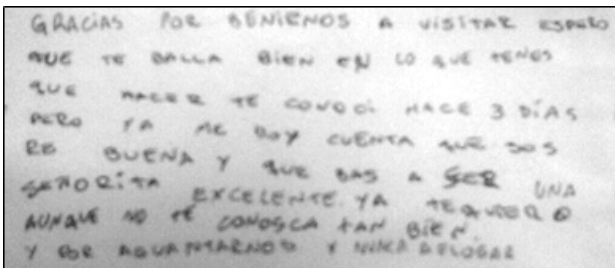 GRACIAS POR BENIRNOS A VISITAR ESPERO
QUE TE BALLA BIEN EN LO QUE TENES
QUE HACER TE CONOCI HACE 3 DÍAS
PERO YA ME DOY CUENTA QUE SOS
RE BUENA Y QUE BAS A SER UNA
SEÑORITA EXCELENTE. YA TE QUIERO
AUNQUE NO TE CONOSCA TAN BIEN.
Y POR AGUANTARNOS Y NUNCA